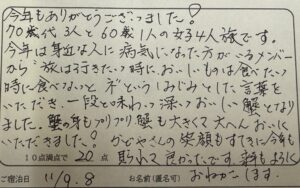 今年もありがとうございました!♡
70歳代3人と60歳1人の女子4人旅です。
今年は身近な人に病気になった方がいるメンバー
から"旅は行きたい時に、おいしいものは食べたい
時に食べないと"という しみじみとした言葉を
いただき、一段と味わい深い おいしい蟹となり
ました。蟹の身もプリプリ蟹も大きくて大へんおいしく
いただきました! さんの笑顔もすてきに今年も
10点満点で 20 点
良かったです。
おねがいします。
ご宿泊日 11/9.8 お名前(匿名可)